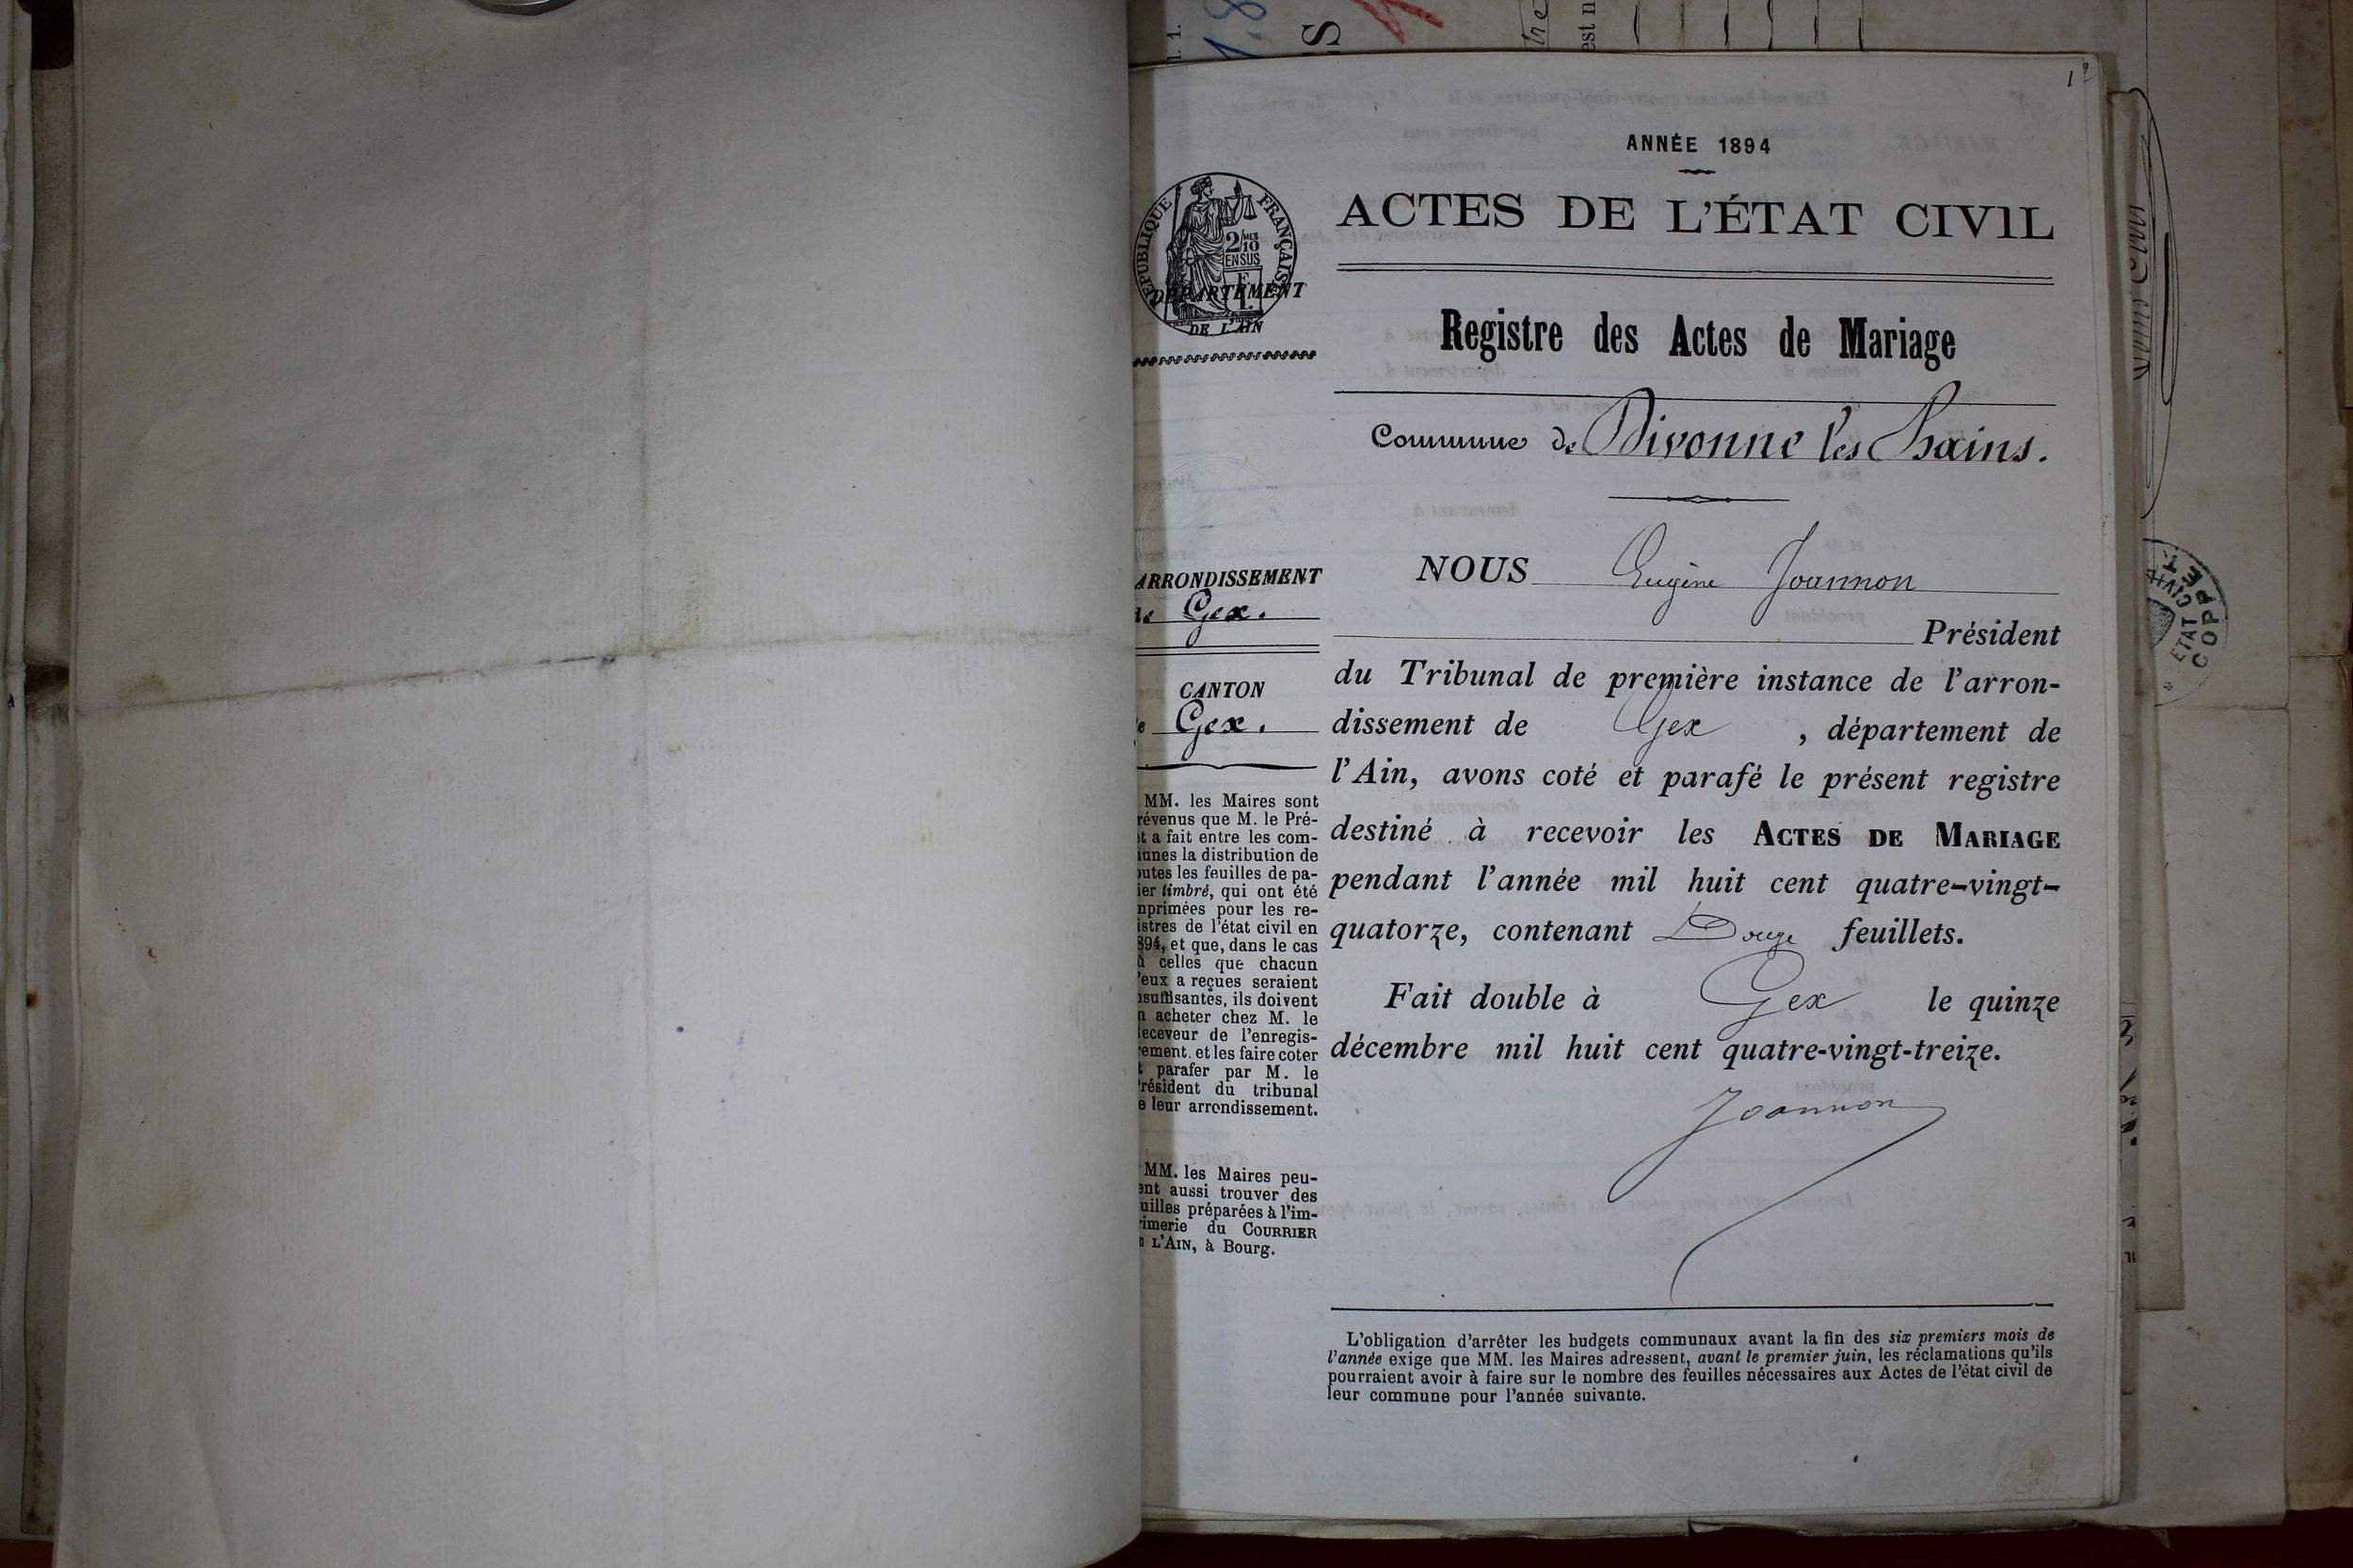 ANNÉE 1894
ACTES DE L'ÉTAT CIVIL
Registre des Actes de Mariage
Commune de Divonne les Bains.
RÉPUBLIQUE FRANÇAISE
2/10 MES
EN SUS
DÉPARTEMENT
DE L'AIN
ARRONDISSEMENT
de Gex.
CANTON
de Gex.
MM. les Maires sont
révenus que M. le Pré-
et a fait entre les com-
unes la distribution de
outes les feuilles de pa-
ier timbré, qui ont été
mprimées pour les re-
istres de l'état civil en
894, et que, dans le cas
ù celles que chacun
'eux a reçues seraient
nsuffisantes, ils doivent
n acheter chez M. le
eceveur de l'enregis-
rement. et les faire coter
t parafer par M. le
résident du tribunal
e leur arrondissement.
MM. les Maires peu-
ent aussi trouver des
uilles préparées à l'im-
rimerie du COURRIER
E L'AIN, à Bourg.
NOUS Eugène Joannon
Président
du Tribunal de première instance de l'arron-
dissement de Gex , département de
l'Ain, avons coté et parafé le présent registre
destiné à recevoir les ACTES DE MARIAGE
pendant l'année mil huit cent quatre-vingt-
quatorze, contenant Douze feuillets.
Fait double à Gex le quinze
décembre mil huit cent quatre-vingt-treize.
Joannon
L'obligation d'arrêter les budgets communaux avant la fin des six premiers mois de
l'année exige que MM. les Maires adressent, avant le premier juin, les réclamations qu'ils
pourraient avoir à faire sur le nombre des feuilles nécessaires aux Actes de l'état civil de
leur commune pour l'année suivante.
ETAT CIVIL
COPPET